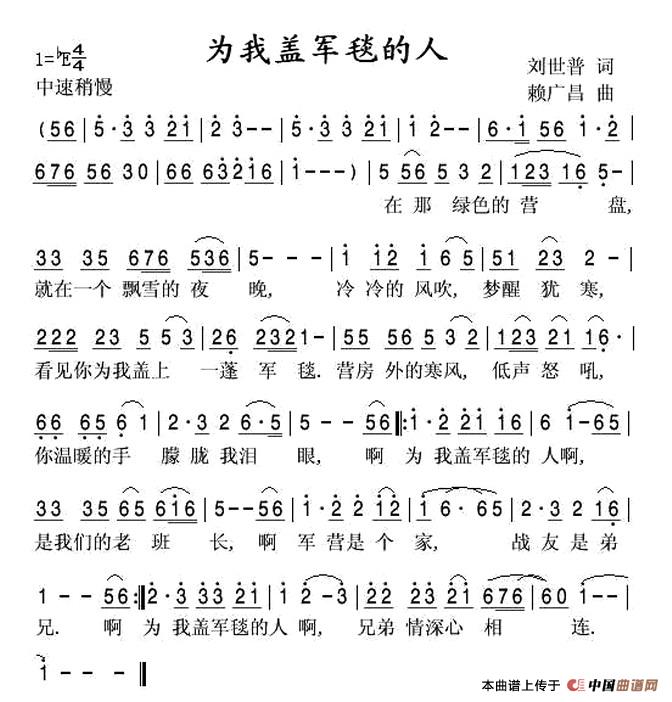 为我盖军毯的人
1=♭E 4/4
中速稍慢
刘世普 词
赖广昌 曲
(56 | 5·3 3 21 | 2 3-- | 5·3 3 21 | 1 2-- | 6·1 56 1·2 |
676 56 30 | 66 63216 | 1---) | 5 56 5 3 2 | 123 16 5- |
在 那 绿色的 营 盘,
33 35 676 536 | 5--- | 1 12 1 6 5 | 51 23 2- |
就在一个 飘雪的 夜 晚, 冷 冷的 风吹, 梦醒 犹 寒,
222 23 5 53 | 26 2321- | 55 56 5 3 2 | 123 21 16· |
看见你为我盖上 一蓬 军 毯. 营房 外的寒风, 低声 怒 吼,
66 65 6 1 | 2·3 2 6·5 | 5-- 56 ‖: 1·2 2165 | 6 1-65 |
你温暖的手 朦胧 我泪 眼, 啊 为 我盖军毯的 人啊,
33 35 65 616 | 5--56 | 1·2 2 12 | 1 6· 65 | 2·3 2 16 |
是我们的老 班 长, 啊 军 营是 个 家, 战友 是 弟
1 - - 56 :‖ 2·3 33 21 | 1 2-3 | 22 23 21 676 | 60 1-- |
兄. 啊 为 我盖军毯的人 啊, 兄弟 情深心 相 连.
1 - - ‖
本曲谱上传于 中国曲谱网